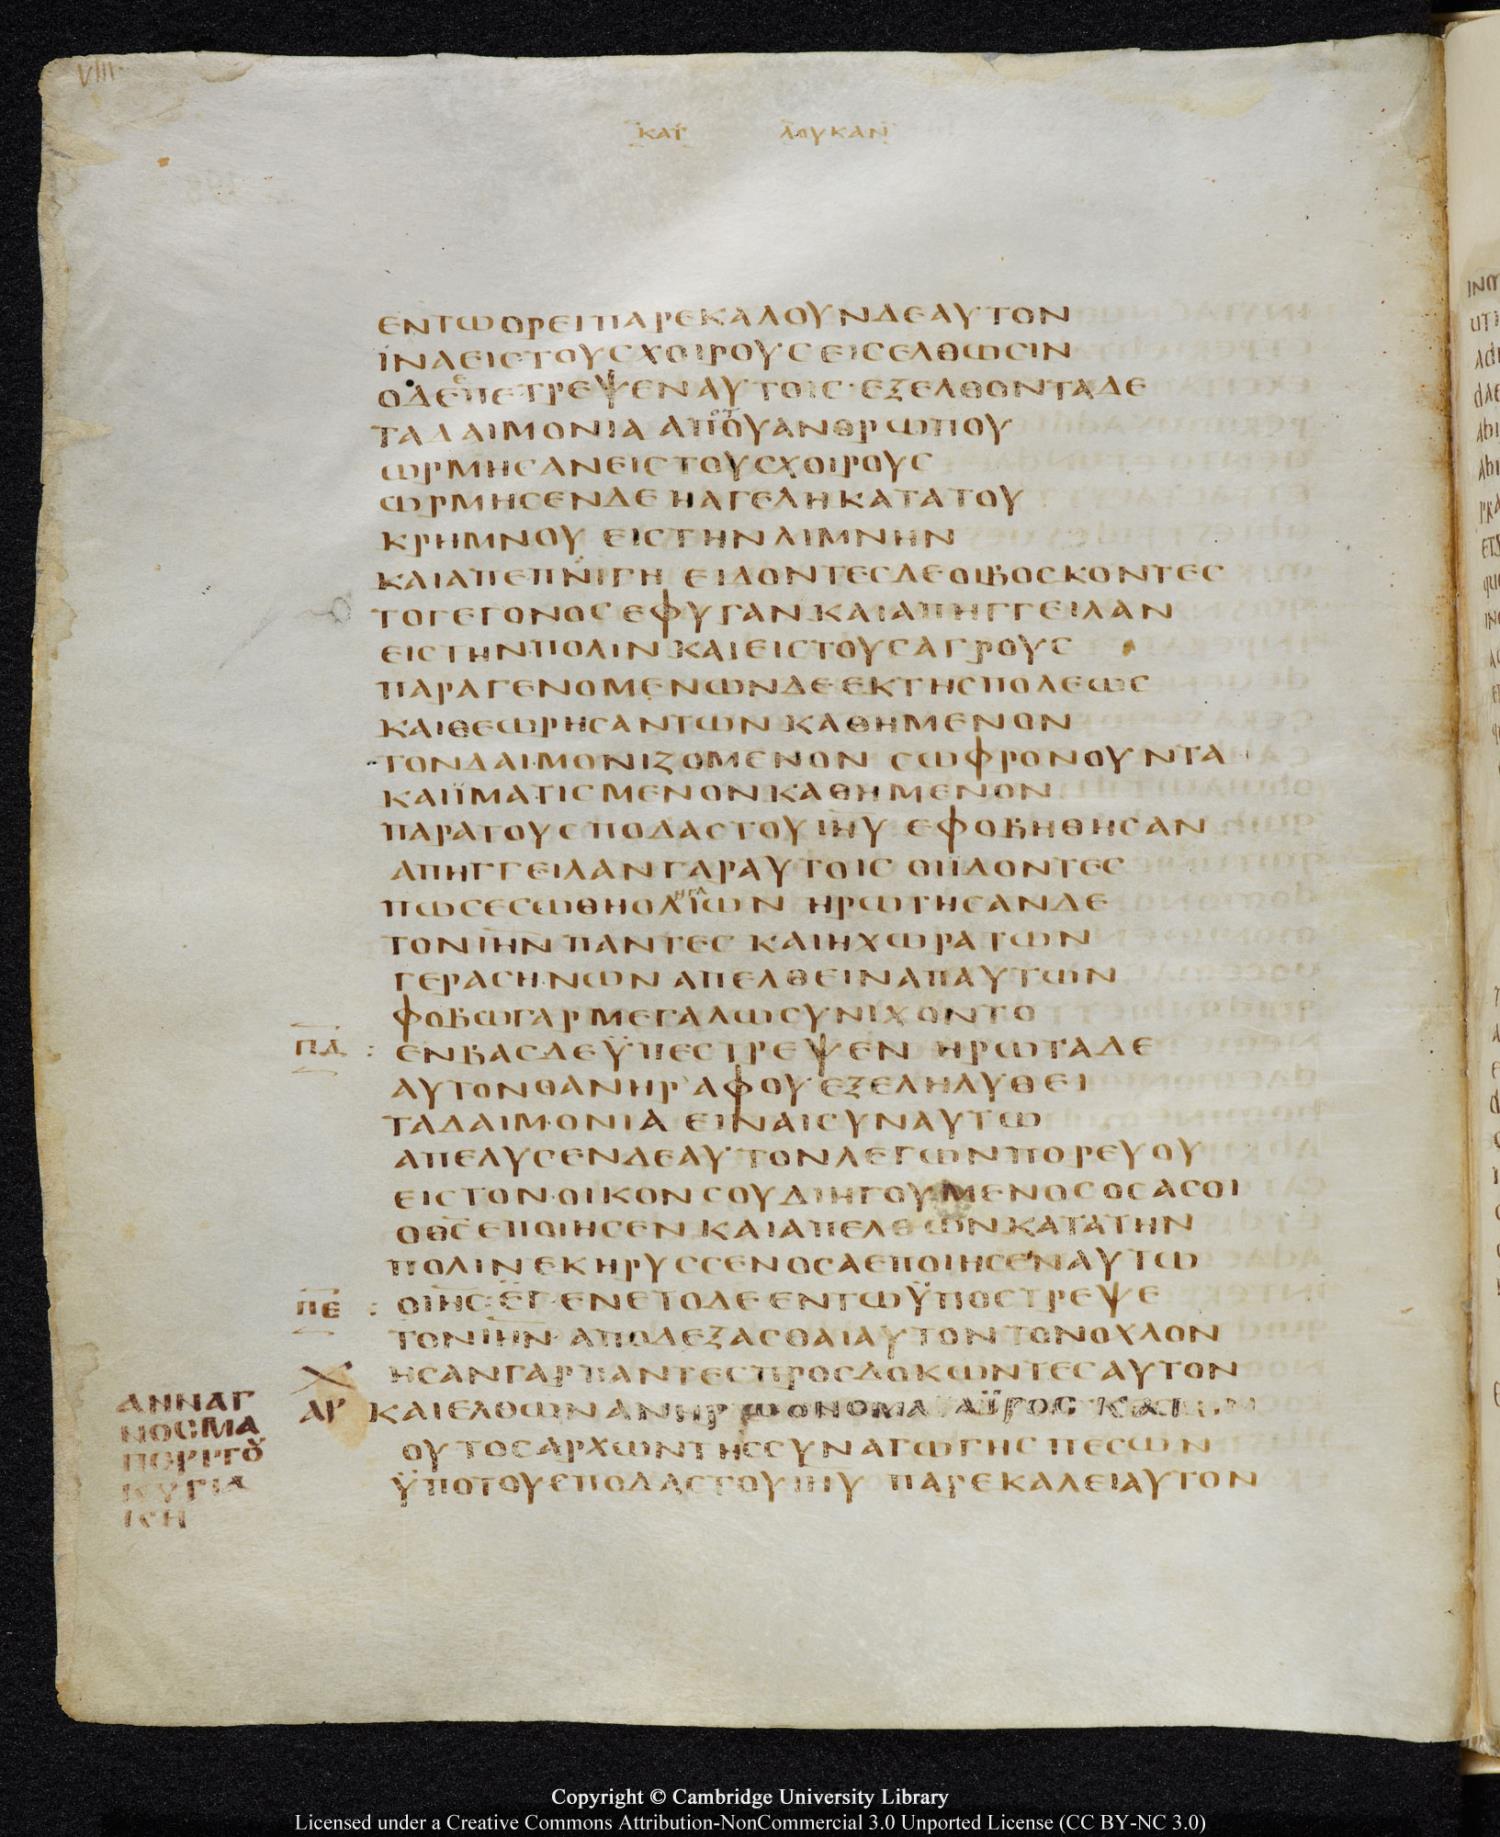 VIII
ΚΑΤ ΛΟΥΚΑΝ
ΕΝΤΩΟΡΕΙΠΑΡΕΚΑΛΟΥΝΔΕΑΥΤΟΝ
ΙΝΑΕΙΣΤΟΥΣΧΟΙΡΟΥΣΕΙΣΕΛΘΩΣΙΝ
ΟΔΕΠΕΤΡΕΨΕΝΑΥΤΟΙΣ·ΕΞΕΛΘΟΝΤΑΔΕ
ΤΑΔΑΙΜΟΝΙΑΑΠΟΤΟΥΑΝΘΡΩΠΟΥ
ΩΡΜΗΣΑΝΕΙΣΤΟΥΣΧΟΙΡΟΥΣ
ΩΡΜΗΣΕΝΔΕΗΑΓΕΛΗΚΑΤΑΤΟΥ
ΚΡΗΜΝΟΥ ΕΙΣΤΗΝΛΙΜΝΗΝ
ΚΑΙΑΠΕΠΝΙΓΗ ΕΙΔΟΝΤΕΣΔΕΟΙΒΟΣΚΟΝΤΕΣ
ΤΟΓΕΓΟΝΟΣΕΦΥΓΑΝΚΑΙΑΠΗΓΓΕΙΛΑΝ
ΕΙΣΤΗΝΠΟΛΙΝΚΑΙΕΙΣΤΟΥΣΑΓΡΟΥΣ
ΠΑΡΑΓΕΝΟΜΕΝΩΝΔΕΕΚΤΗΣΠΟΛΕΩΣ
ΚΑΙΘΕΩΡΗΣΑΝΤΩΝΚΑΘΗΜΕΝΟΝ
ΤΟΝΔΑΙΜΟΝΙΖΟΜΕΝΟΝ ΣΩΦΡΟΝΟΥΝΤΑ
ΚΑΙΪΜΑΤΙΣΜΕΝΟΝΚΑΘΗΜΕΝΟΝ
ΠΑΡΑΤΟΥΣΠΟΔΑΣΤΟΥΙΗΥ ΕΦΟΒΗΘΗΣΑΝ
ΑΠΗΓΓΕΙΛΑΝΓΑΡΑΥΤΟΙΣ ΟΙΪΔΟΝΤΕΣ
ΠΩΣΕΣΩΘΗΟΛΙΩΝ ΗΡΩΤΗΣΑΝΔΕ
ΤΟΝΙΗΝΠΑΝΤΕΣ ΚΑΙΗΧΩΡΑΤΩΝ
ΓΕΡΑΣΗΝΩΝ ΑΠΕΛΘΕΙΝΑΠΑΥΤΩΝ
ΦΟΒΩΓΑΡΜΕΓΑΛΩΣΥΝΙΧΟΝΤΟ
ΠΔ : ΕΝΒΑΣΔΕΫΠΕΣΤΡΕΨΕΝ ΗΡΩΤΑΔΕ
ΑΥΤΟΝΟΑΝΗΡ ΑΦΟΥΕΞΕΛΗΛΥΘΕΙ
ΤΑΔΑΙΜΟΝΙΑ ΕΙΝΑΙΣΥΝΑΥΤΩ
ΑΠΕΛΥΣΕΝΔΕΑΥΤΟΝΛΕΓΩΝΠΟΡΕΥΟΥ
ΕΙΣΤΟΝΟΙΚΟΝΣΟΥΔΙΗΓΟΥΜΕΝΟΣΟΣΑΣΟΙ
ΟΘΣΕΠΟΙΗΣΕΝ ΚΑΙΑΠΕΛΘΩΝΚΑΤΑΤΗΝ
ΠΟΛΙΝΕΚΗΡΥΣΣΕΝΟΣΑΕΠΟΙΗΣΕΝΑΥΤΩ
ΠΕ : ΟΙΗΣ ΕΓΕΝΕΤΟΔΕΕΝΤΩΫΠΟΣΤΡΕΨΕ
ΤΟΝΙΗΝ ΑΠΟΔΕΞΑΣΘΑΙΑΥΤΟΝΤΟΝΟΧΛΟΝ
ΗΣΑΝΓΑΡΠΑΝΤΕΣΠΡΟΣΔΟΚΩΝΤΕΣΑΥΤΟΝ
ΑΡ ΚΑΙΕΛΘΩΝΑΝΗΡ ΩΟΝΟΜΑ ΑΪΡΟΣ ΚΑΙ
ΟΥΤΟΣΑΡΧΩΝΤΗΣΣΥΝΑΓΩΓΗΣΠΕΣΩΝ
ΫΠΟΤΟΥΣΠΟΔΑΣΤΟΥΙΗΥ ΠΑΡΕΚΑΛΕΙΑΥΤΟΝ
ΑΝΝΑΓ
ΝΟΣΜΑ
Copyright © Cambridge University Library
Licensed under a Creative Commons Attribution-NonCommercial 3.0 Unported License (CC BY-NC 3.0)